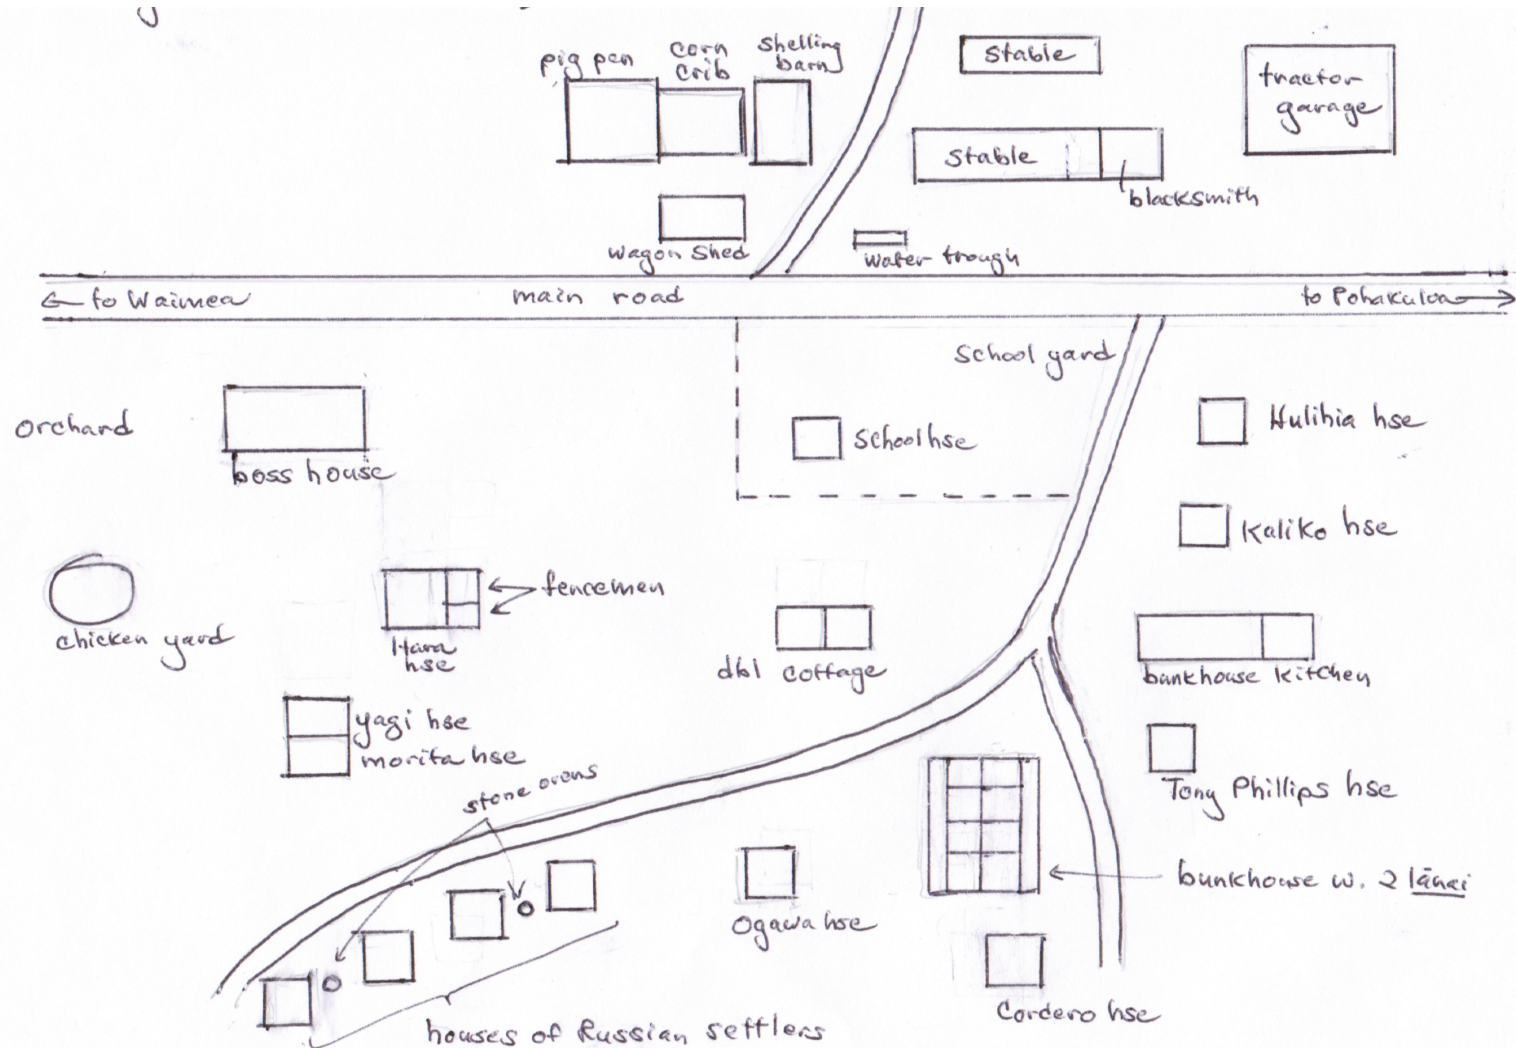 pig pen
corn
crib
shelling
barn
stable
tractor
garage
stable
blacksmith
wagon shed
water trough
← to Waimea
main road
to Pohakuloa →
school yard
orchard
boss house
schoolhse
Hulihia hse
Kaliko hse
chicken yard
Hara
hse
fencemen
dbl cottage
bunkhouse kitchen
yagi hse
morita hse
stone ovens
Tony Phillips hse
bunkhouse w. 2 lānai
Ogawa hse
Cordero hse
houses of Russian settlers